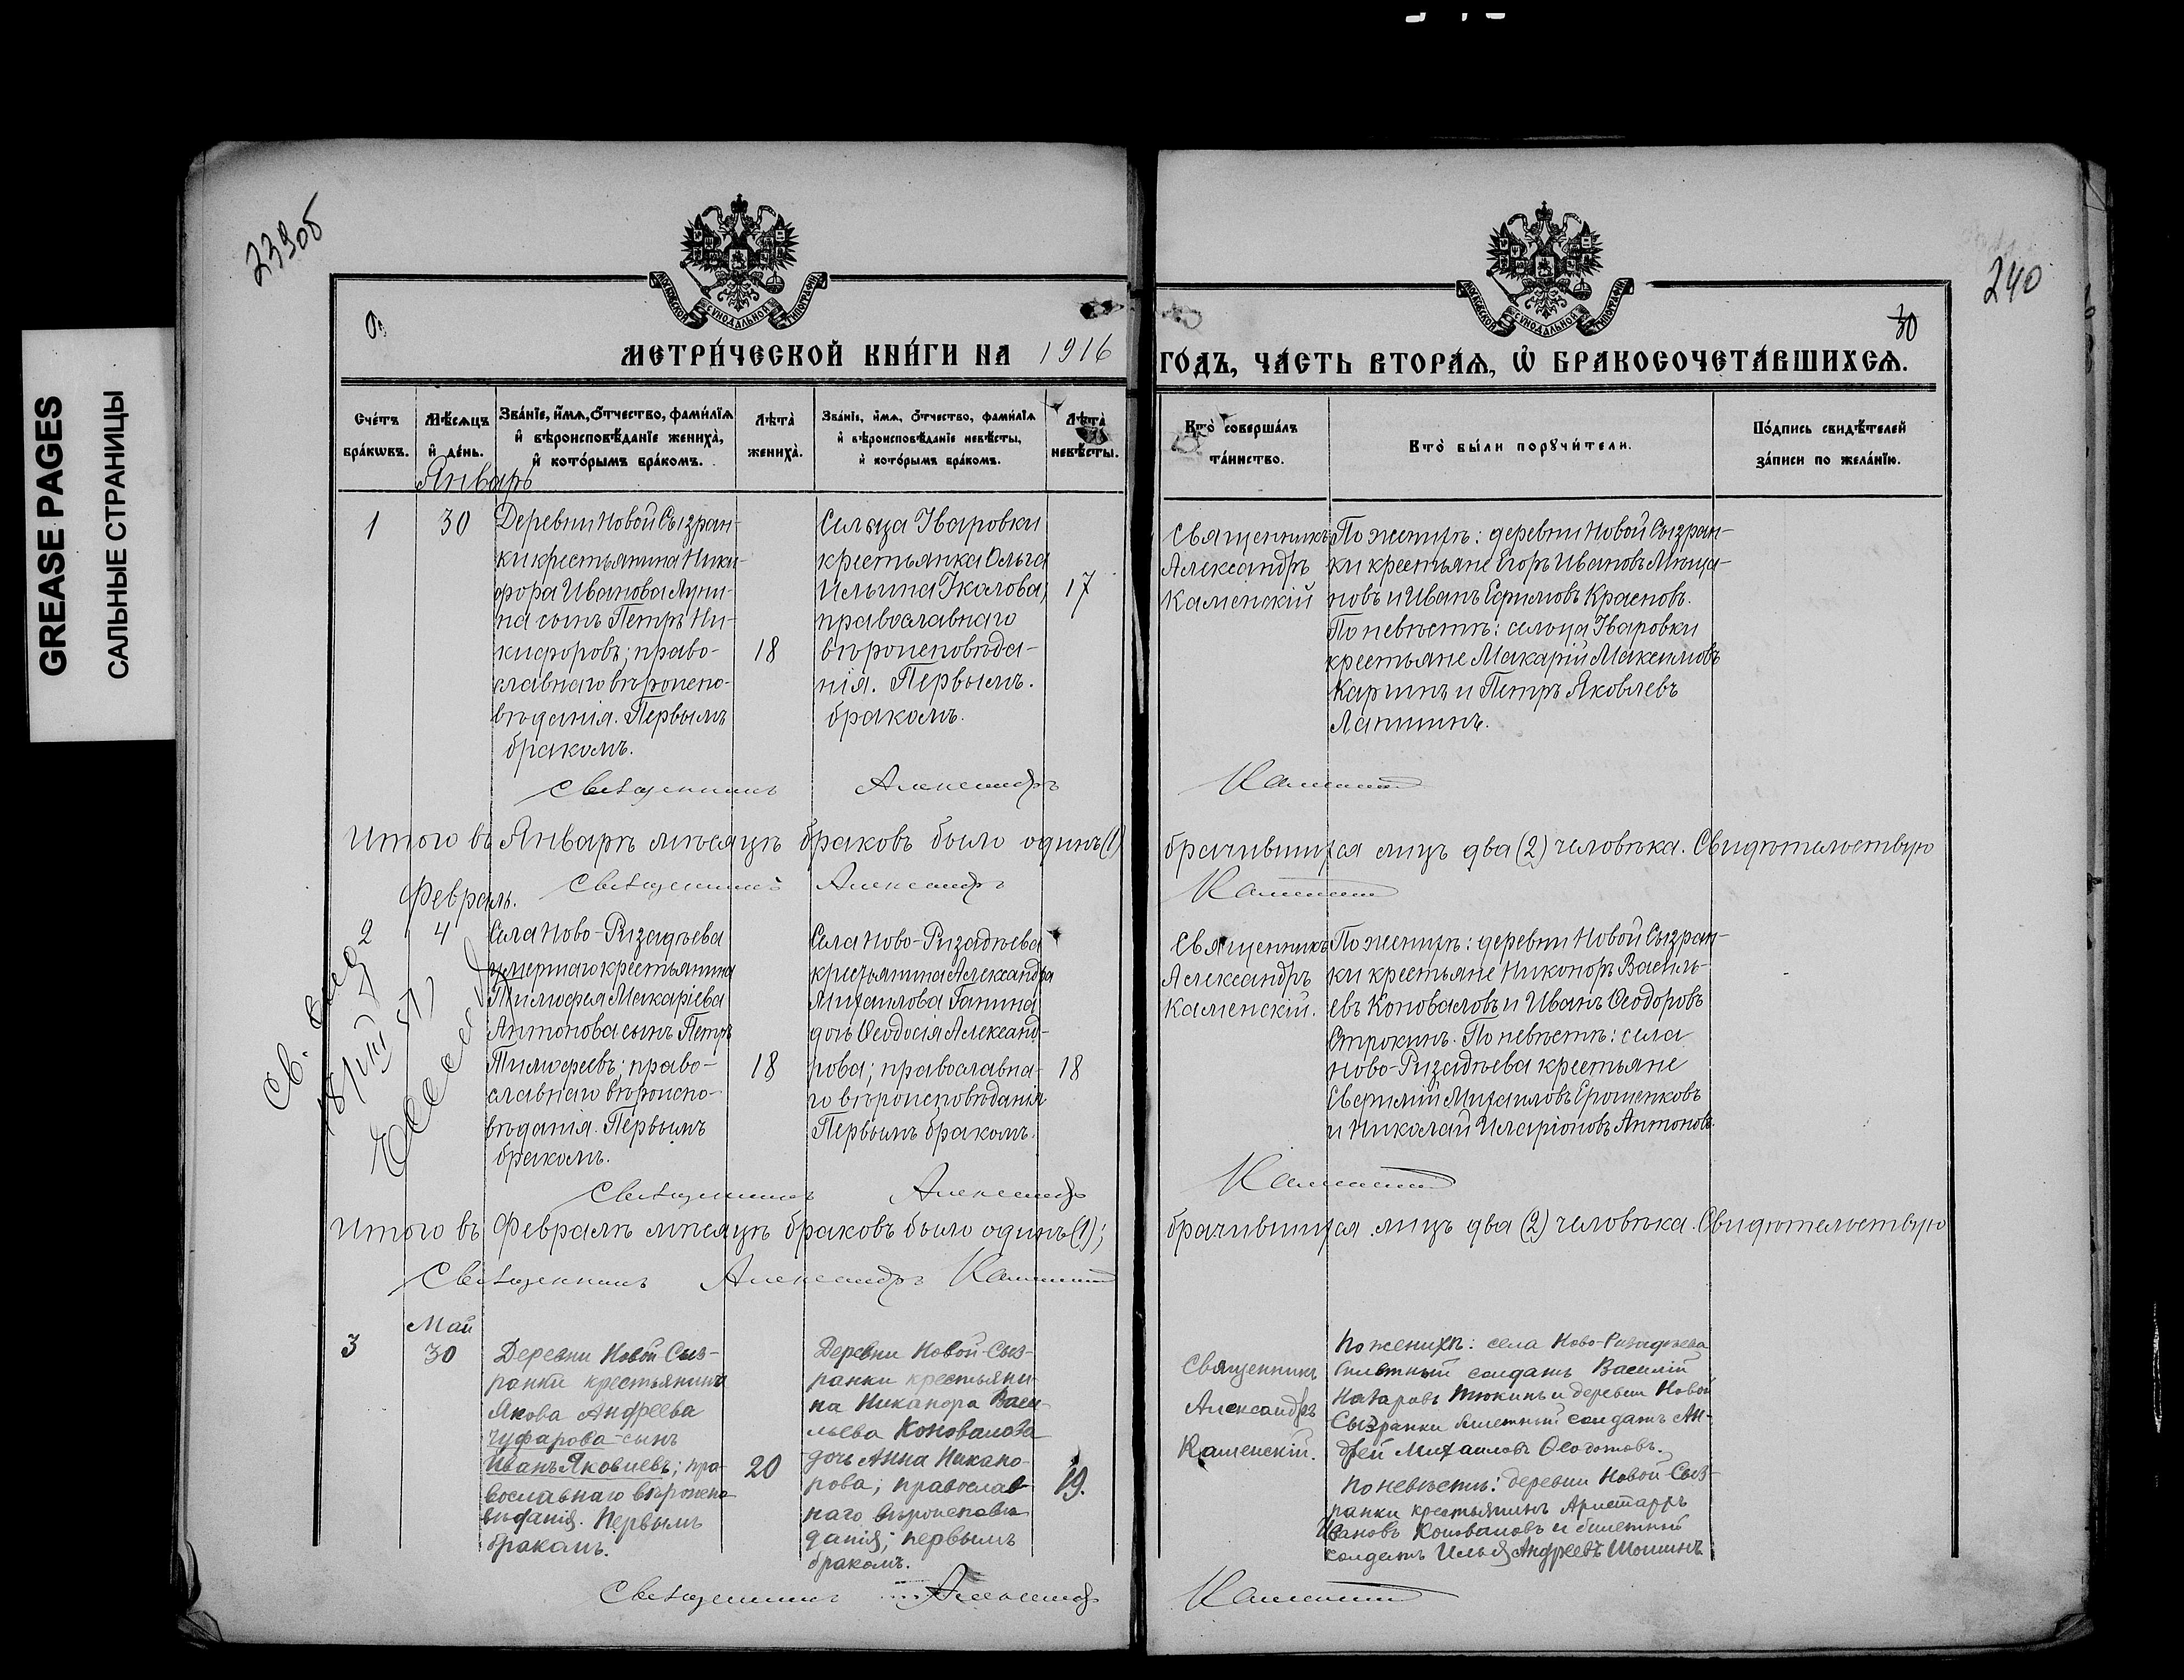 GREASE PAGES
САЛЬНЫЕ СТРАНИЦЫ
239об
240
30
МОСКОВСКОЙ СУНОДАЛЬНОЙ ТИПОГРАФІИ
МОСКОВСКОЙ СУНОДАЛЬНОЙ ТИПОГРАФІИ
МЕТРИ́ЧЕСКОЙ КНИ́ГИ НА 1916
ГО́ДЪ, ЧА́СТЬ ВТОРА́Ѧ, Ѽ БРАКОСОЧЕТА́ВШИХСѦ.
Сче́тъ
бра́кѡвъ.
Мѣ́сѧцъ
и҆ де́нь.
Зва́нїе, и҆́мѧ, ѻ҆́тчество, фами́лїѧ
и҆ вѣроисповѣ́данїе жениха̀,
и҆ кото́рымъ бра́комъ.
Лѣта̀
жениха̀.
Зва́нїе, и҆́мѧ, ѻ҆́тчество, фами́лїѧ
и҆ вѣроисповѣ́данїе невѣ́сты,
и҆ кото́рымъ бра́комъ.
Лѣта̀
невѣ́сты.
Кто̀ соверша́лъ
та́инство.
Кто̀ бы́ли порꙋчи́тели.
По́дпись свидѣ́телей
за́писи по жела́нїю.
Январь
1
30
Деревни Новой Сызран-
ки крестьянина Ники-
фора Иванова Лупи-
на сынъ Петръ Ни-
кифоровъ; право-
славнаго вѣроиспо-
вѣданія. Первымъ
бракомъ.
18
Сельца Иваровки
крестьянка Ольга
Ильина Икалова;
православнаго
вѣроисповѣда-
нія. Первымъ.
бракомъ.
17
Священникъ
Александръ
Каменскій
По женихѣ: деревни Новой Сызран-
ки крестьяне Егоръ Ивановъ Мюца-
новъ и Иванъ Ефимовъ Красновъ.
По невѣстѣ: сельца Иваровки
крестьяне Макарій Максимовъ
Каргинъ и Петръ Яковлевъ
Лапшинъ.
Священникъ Александръ Каменскій
Итого въ Январѣ мѣсяцѣ браковъ было одинъ (1)
брачившихся лицъ два (2) человѣка. Свидѣтельствую
Священникъ Александръ Каменскій
Февраль.
2
4
Села Ново-Ризадѣева
умершаго крестьянина
Тимофея Макаріева
Антонова сынъ Петръ
Тимофеевъ; право-
славнаго вѣроиспо-
вѣданія. Первымъ
бракомъ.
18
Села Ново-Ризадѣева
крестьянина Александра
Михаилова Ганина
дочь Ѳеодосія Александ-
рова; православна-
го вѣроисповѣданія
Первымъ бракомъ.
18
Священникъ
Александръ
Каменскій.
По женихѣ: деревни Новой Сызран-
ки крестьяне Никоноръ Василь-
евъ Коноваловъ и Иванъ Ѳеодоровъ
Строкинъ. По невѣстѣ: села
Ново-Ризадѣева крестьяне
Евфимій Михаиловъ Ерошенковъ
и Николай Иларіоновъ Антоновъ.
Священникъ Александръ Каменскій
Итого въ Февралѣ мѣсяцѣ браковъ было одинъ (1);
брачившихся лицъ два (2) человѣка. Свидѣтельствую
Священникъ Александръ Каменскій
Май
3
30
Деревни Новой Сыз-
ранки крестьянина
Якова Андреева
Чуфарова сынъ
Иванъ Яковлевъ; пра-
вославнаго вѣроиспо-
вѣданія. Первымъ
бракомъ.
20
Деревни Новой-Сыз-
ранки крестьяни-
на Никанора Васи-
льева Коновалова
дочь Анна Никано-
рова; православ-
наго вѣроисповѣ-
данія; первымъ
бракомъ.
19.
Священникъ
Александръ
Каменскій.
По женихѣ: села Ново-Ризадѣева
билетный солдатъ Василій
Назаровъ Тюкинъ и деревни Новой
Сызранки билетный солдатъ Ан-
дрей Михаиловъ Ѳедотовъ.
По невѣстѣ: деревни Новой-Сыз-
ранки крестьянинъ Аристархъ
Ивановъ Коноваловъ и билетный
солдатъ Илья Андреевъ Шошинъ.
Священникъ Александръ Каменскій